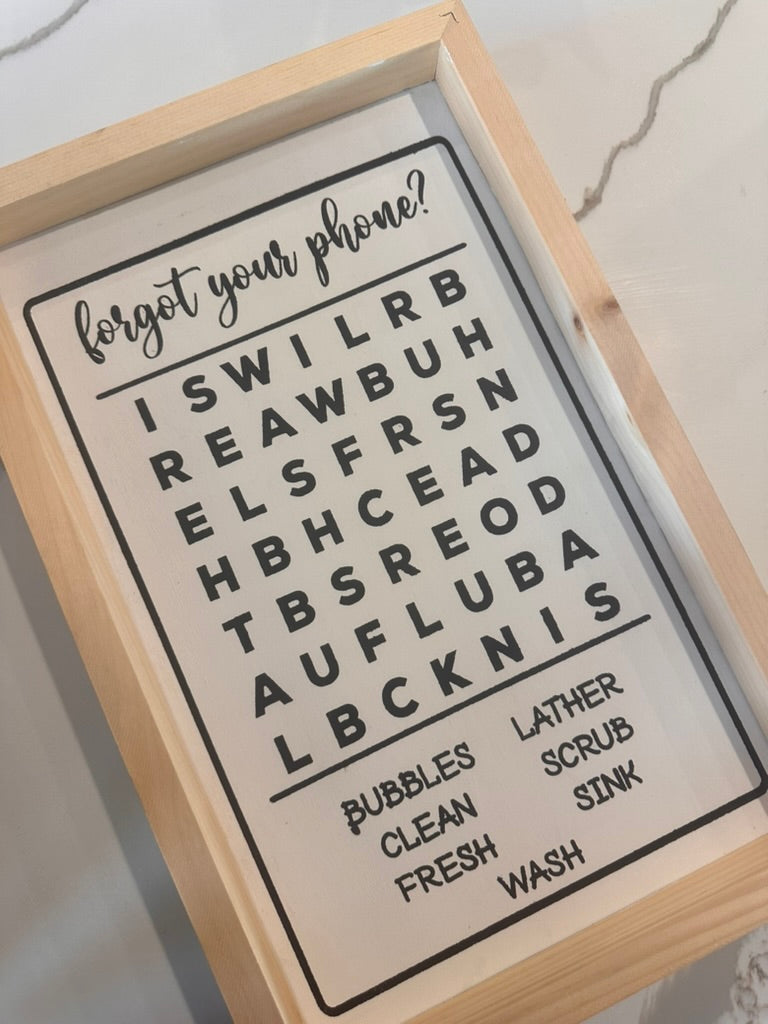 forgot your phone?
I S W I L R B
R E A W B U H
E L S F R S N
H B H C E A D
T B S R E O D
A U F L U B A
L B C K N I S
BUBBLES LATHER
CLEAN SCRUB
FRESH SINK
WASH